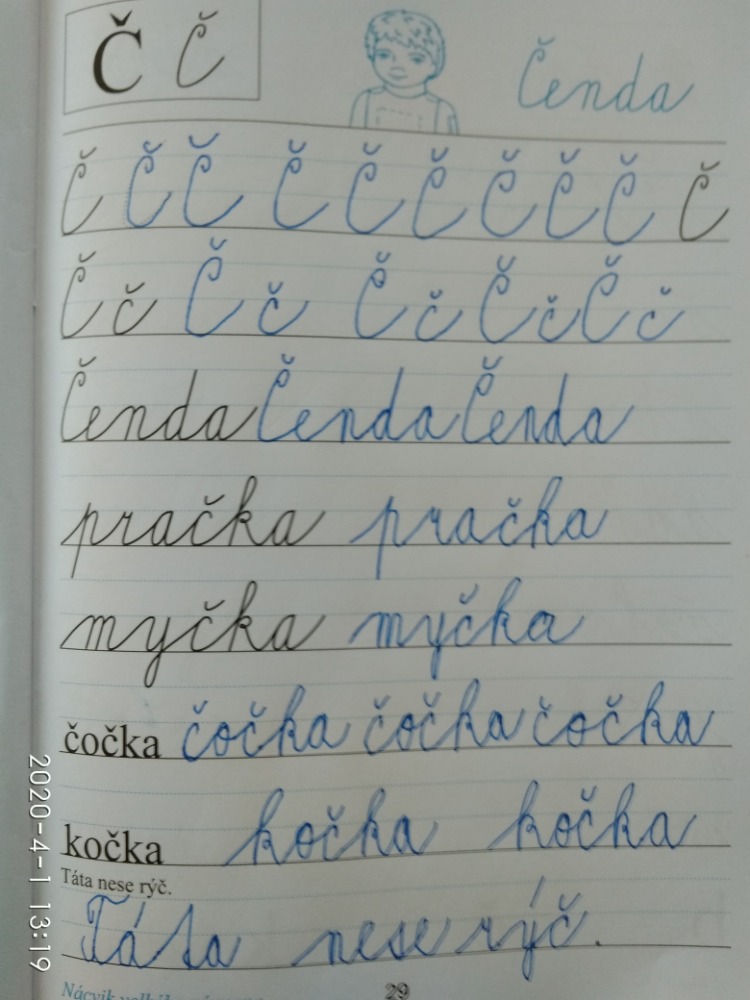 Č Č Čenda
Č Č Č Č Č Č Č Č Č Č
Č č Č č Č č Č č Č č
Čenda Čenda Čenda
pračka pračka
myčka myčka
čočka čočka čočka čočka
kočka kočka kočka
Táta nese rýč.
Táta nese rýč.
29
2020-4-1 13:19